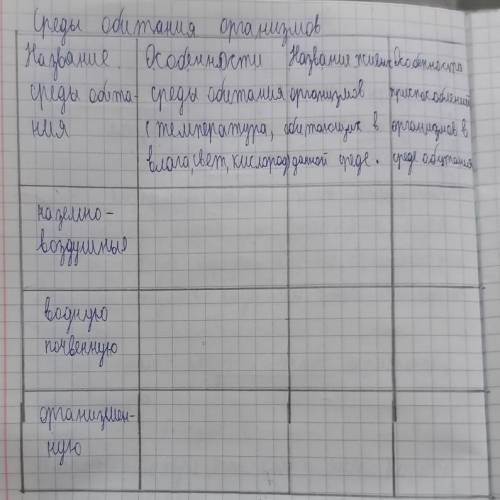 Среды обитания организмов
Название
среды обита-
ния
Особенности
среды обитания
(температура,
влага, свет, кислород)
Название живых
организмов
обитающих в
данной среде.
Особенности
приспособлений
организмов в
среде обитания
наземно-
воздушные
водную
почвенную
организмен-
ную